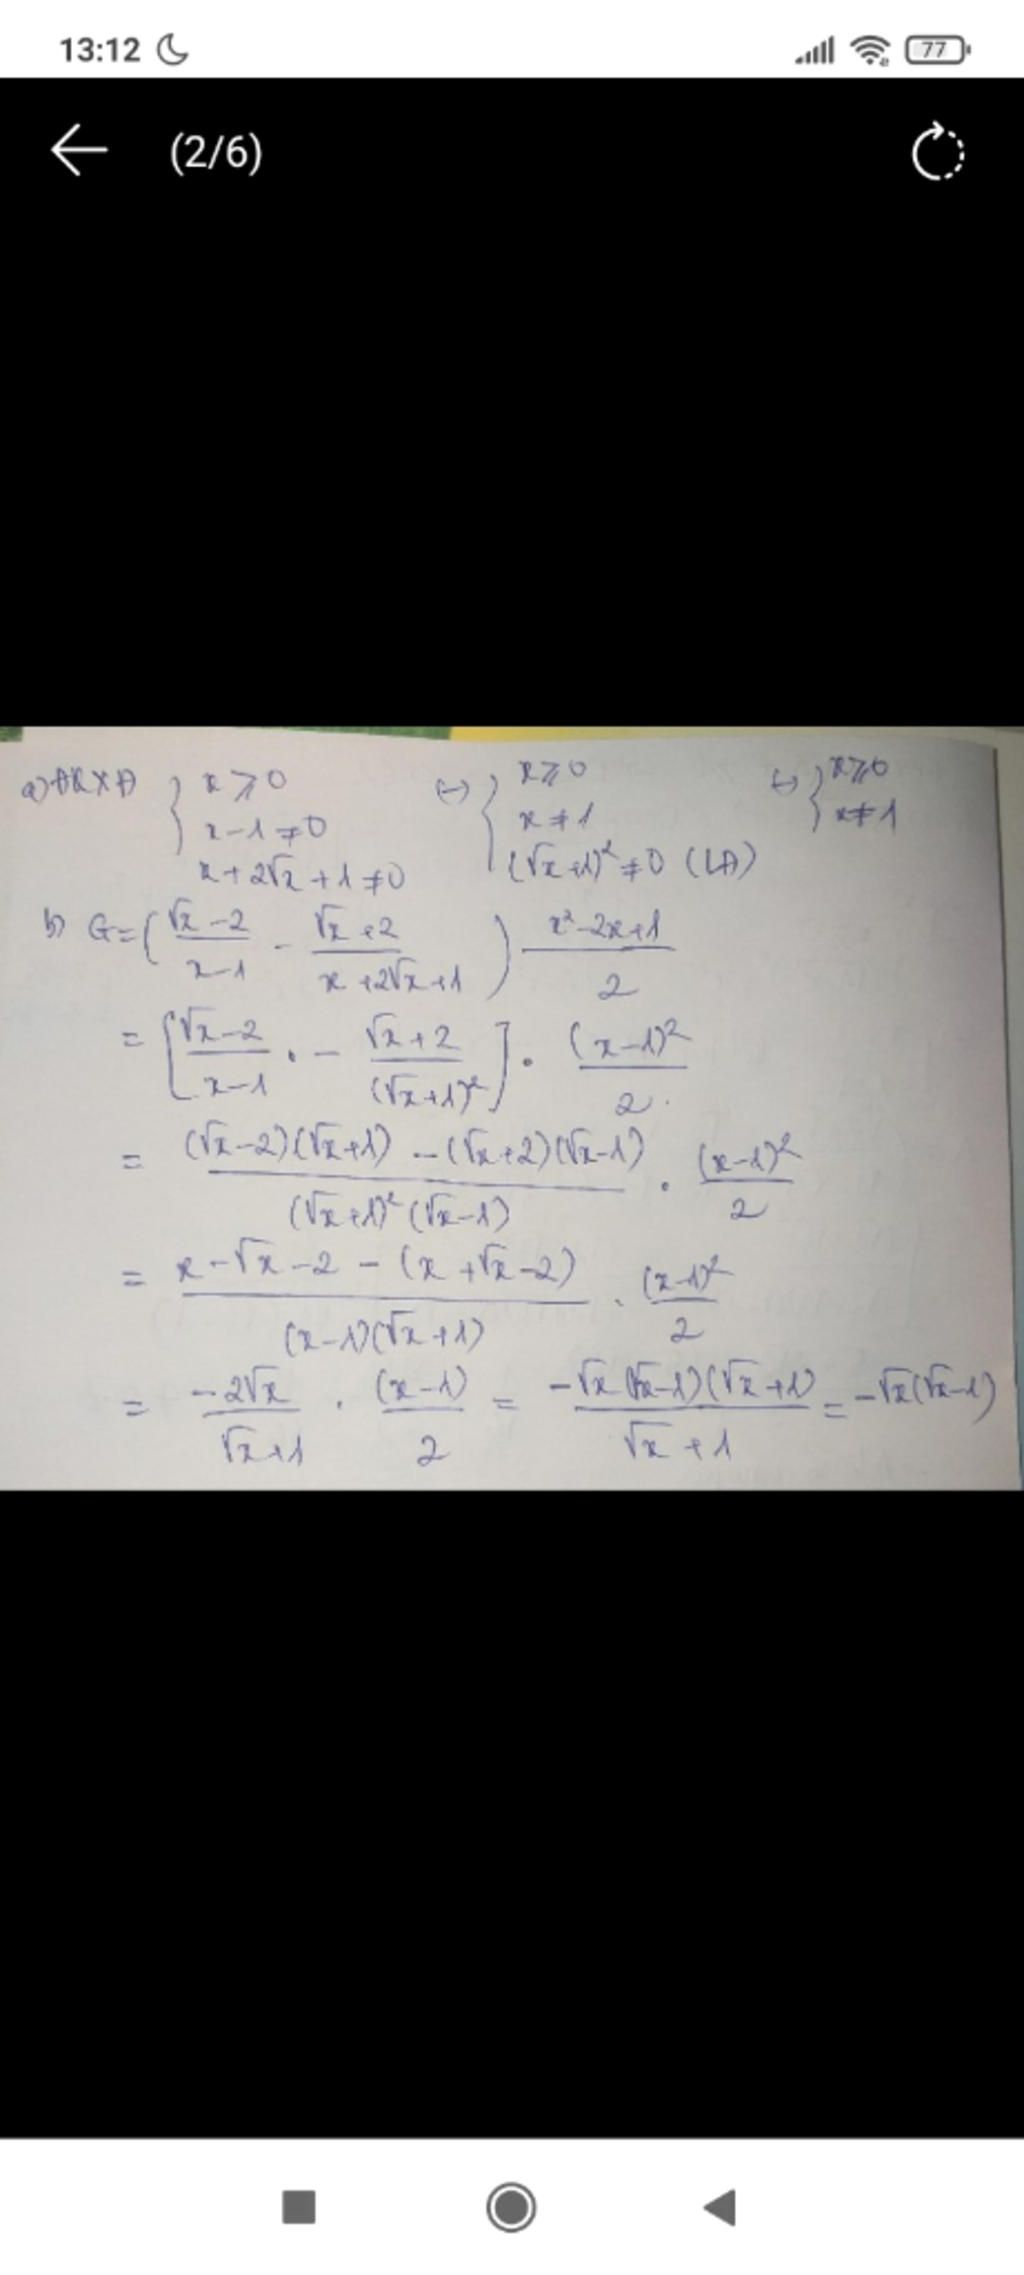 13:12 77
(2/6)
a) ĐKXĐ { x ⩾ 0 (=) { x ⩾ 0 (=) { x ⩾ 0
x - 1 ≠ 0 x ≠ 1 x ≠ 1
x + 2√x + 1 ≠ 0 (√x + 1)² ≠ 0 (LĐ)
b) G = ( (√x - 2)/(x - 1) - (√x + 2)/(x + 2√x + 1) ) (x² - 2x + 1)/2
= [ (√x - 2)/(x - 1) . - (√x + 2)/(√x + 1)² ] . (x - 1)²/2
= ((√x - 2)(√x + 1) - (√x + 2)(√x - 1))/((√x + 1)²(√x - 1)) . (x - 1)²/2
= (x - √x - 2 - (x + √x - 2))/((x - 1)(√x + 1)) . (x - 1)²/2
= (-2√x)/(√x + 1) . (x - 1)/2 = (-√x(√x - 1)(√x + 1))/(√x + 1) = -√x(√x - 1)